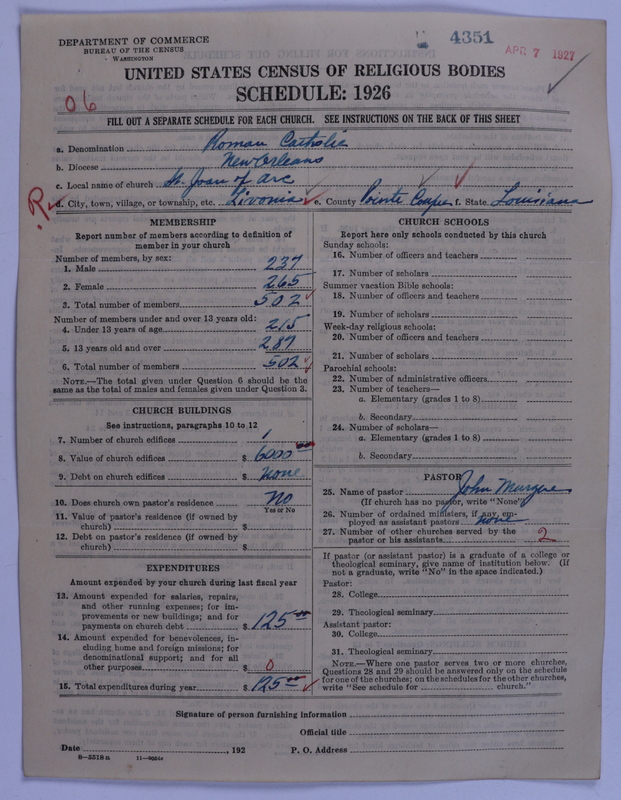 4351
APR 7 1927
DEPARTMENT OF COMMERCE
BUREAU OF THE CENSUS
WASHINGTON
UNITED STATES CENSUS OF RELIGIOUS BODIES
SCHEDULE: 1926
06
FILL OUT A SEPARATE SCHEDULE FOR EACH CHURCH. SEE INSTRUCTIONS ON THE BACK OF THIS SHEET
a. Denomination Roman Catholic
b. Diocese New Orleans
c. Local name of church St. Joan of Arc
R
d. City, town, village, or township, etc. Livonia e. County Pointe Coupee f. State Louisiana
MEMBERSHIP
Report number of members according to definition of
member in your church
Number of members, by sex:
1. Male 237
2. Female 265
3. Total number of members 502
Number of members under and over 13 years old:
4. Under 13 years of age 215
5. 13 years old and over 287
6. Total number of members 502
NOTE.—The total given under Question 6 should be the
same as the total of males and females given under Question 3.
CHURCH BUILDINGS
See instructions, paragraphs 10 to 12
7. Number of church edifices 1
8. Value of church edifices $ 6000 00
9. Debt on church edifices $ None
10. Does church own pastor's residence No
Yes or No
11. Value of pastor's residence (if owned by
church) $
12. Debt on pastor's residence (if owned by
church) $
EXPENDITURES
Amount expended by your church during last fiscal year
13. Amount expended for salaries, repairs,
and other running expenses; for im-
provements or new buildings; and for
payments on church debt $ 125 00
14. Amount expended for benevolences, in-
cluding home and foreign missions; for
denominational support; and for all
other purposes $ 0
15. Total expenditures during year $ 125 00
CHURCH SCHOOLS
Report here only schools conducted by this church
Sunday schools:
16. Number of officers and teachers
17. Number of scholars
Summer vacation Bible schools:
18. Number of officers and teachers
19. Number of scholars
Week-day religious schools:
20. Number of officers and teachers
21. Number of scholars
Parochial schools:
22. Number of administrative officers
23. Number of teachers—
a. Elementary (grades 1 to 8)
b. Secondary
24. Number of scholars—
a. Elementary (grades 1 to 8)
b. Secondary
PASTOR
25. Name of pastor John
(If church has no pastor, write "None")
26. Number of ordained ministers, if any, em-
ployed as assistant pastors none
27. Number of other churches served by the
pastor or his assistants 2
If pastor (or assistant pastor) is a graduate of a college or
theological seminary, give name of institution below. (If
not a graduate, write "No" in the space indicated.)
Pastor:
28. College
29. Theological seminary
Assistant pastor:
30. College
31. Theological seminary
NOTE.—Where one pastor serves two or more churches,
Questions 28 and 29 should be answered only on the schedule
for one of the churches; on the schedules for the other churches,
write "See schedule for church."
Signature of person furnishing information
Official title
Date , 192 P. O. Address
8—5518a 11—9054a